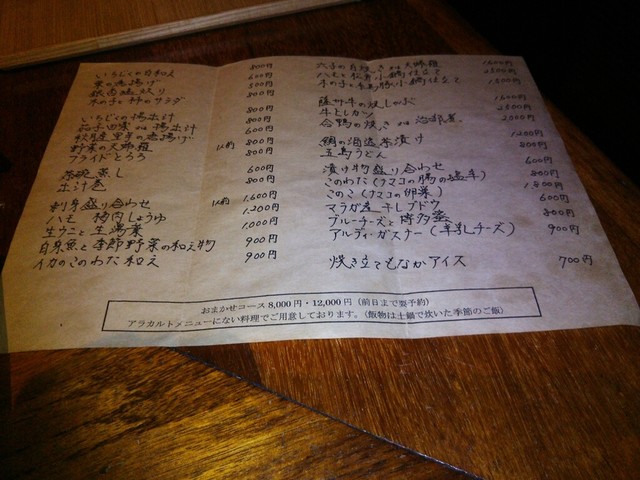 いちじくの白和え 800円
栗の渋揚げ 600円
銀杏塩炒り 500円
木の子と柿のサラダ 800円
いちじくの揚出汁 800円
茄子田楽 揚出汁 800円
里芋の唐揚げ 600円
野菜の天婦羅 1人前 800円
フライドとろろ 800円
茶碗蒸し 600円
出汁巻 800円
刺身盛り合わせ 1人前 1,600円
ハモ 梅肉しょうゆ 1,200円
生ウニと生湯葉 1,000円
白身魚と季節野菜の和え物 900円
イカのこのわた和え 900円
1600円
ハモと松茸小鍋仕立て
木の子と 小鍋仕立て 1500円
薩州牛の炊しゃぶ 1600円
牛ヒレカツ 2500円
合鴨の焼き 2000円
鯛の酒盗茶漬け 1200円
五島うどん 800円
漬け物盛り合わせ 600円
このわた(ナマコの腸の塩辛) 800円
このこ(ナマコの卵巣) 1,800円
マラガ産干しブドウ 600円
ブルーチーズと博多 800円
アルディ・ガスナー(羊乳チーズ) 900円
焼き立てもなかアイス 700円
おまかせコース 8,000円・12,000円(前日まで要予約)
アラカルトメニューにない料理でご用意しております。(飯物は土鍋で炊いた季節のご飯)